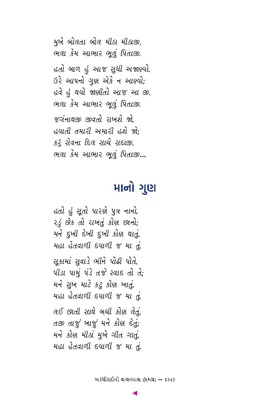 મુખે બોલતા બોલ મીઠા મીઠાજી,
ભલા કેમ આભાર ભૂલું પિતાજી.
હતો બાળ હું આજ સુધી અજાણ્યો,
ઉરે આપનો ગુણ એકે ન આણ્યો;
હવે હું થયો જાણીતો આજ આ જી,
ભલા કેમ આભાર ભૂલું પિતાજી.
જગંનાથજી જીવતો રાખશે જો,
હયાતી તમારી અમારી હશે જો;
કરું સેવના દિલ સાચે સદાજી,
ભલા કેમ આભાર ભૂલું પિતાજી...
માનો ગુણ
હતો હું સૂતો પારણે પુત્ર નાનો,
રડું છેક તો રાખતું કોણ છાનો;
મને દુખી દેખી દુખી કોણ થાતું,
મહા હેતવાળી દયાળી જ મા તું.
સૂકામાં સુવાડે ભીને પોઢી પોતે,
પીડા પામું પંડે તજે સ્વાદ તો તે;
મને સુખ માટે કટુ કોણ ખાતું,
મહા હેતવાળી દયાળી જ મા તું.
લઈ છાતી સાથે બચી કોણ લેતું,
તજી તાજું ખાજું મને કોણ દેતું;
મને કોણ મીઠાં મુખે ગીત ગાતું,
મહા હેતવાળી દયાળી જ મા તું.
અરધી સદીની વાચનયાત્રા (ભાગ) — 1343
◄